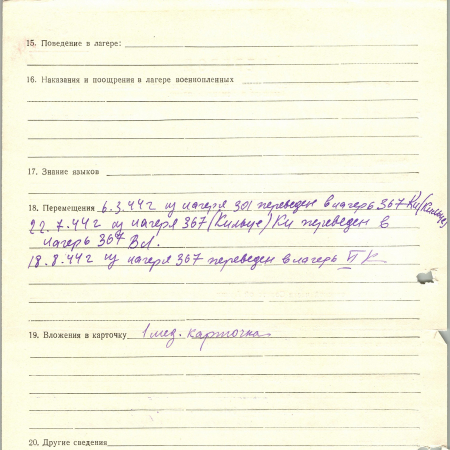 15. Поведение в лагере:
16. Наказания и поощрения в лагере военнопленных
17. Знание языков
18. Перемещения 6.3.44 г из лагеря 301 переведен в лагерь 367 Ки (Кильце)
22.7.44 г из лагеря 367 (Кильце) Ки переведен в
лагерь 367 Вл.
18.8.44 г из лагеря 367 переведен в лагерь II К
19. Вложения в карточку 1 мед. карточка
20. Другие сведения